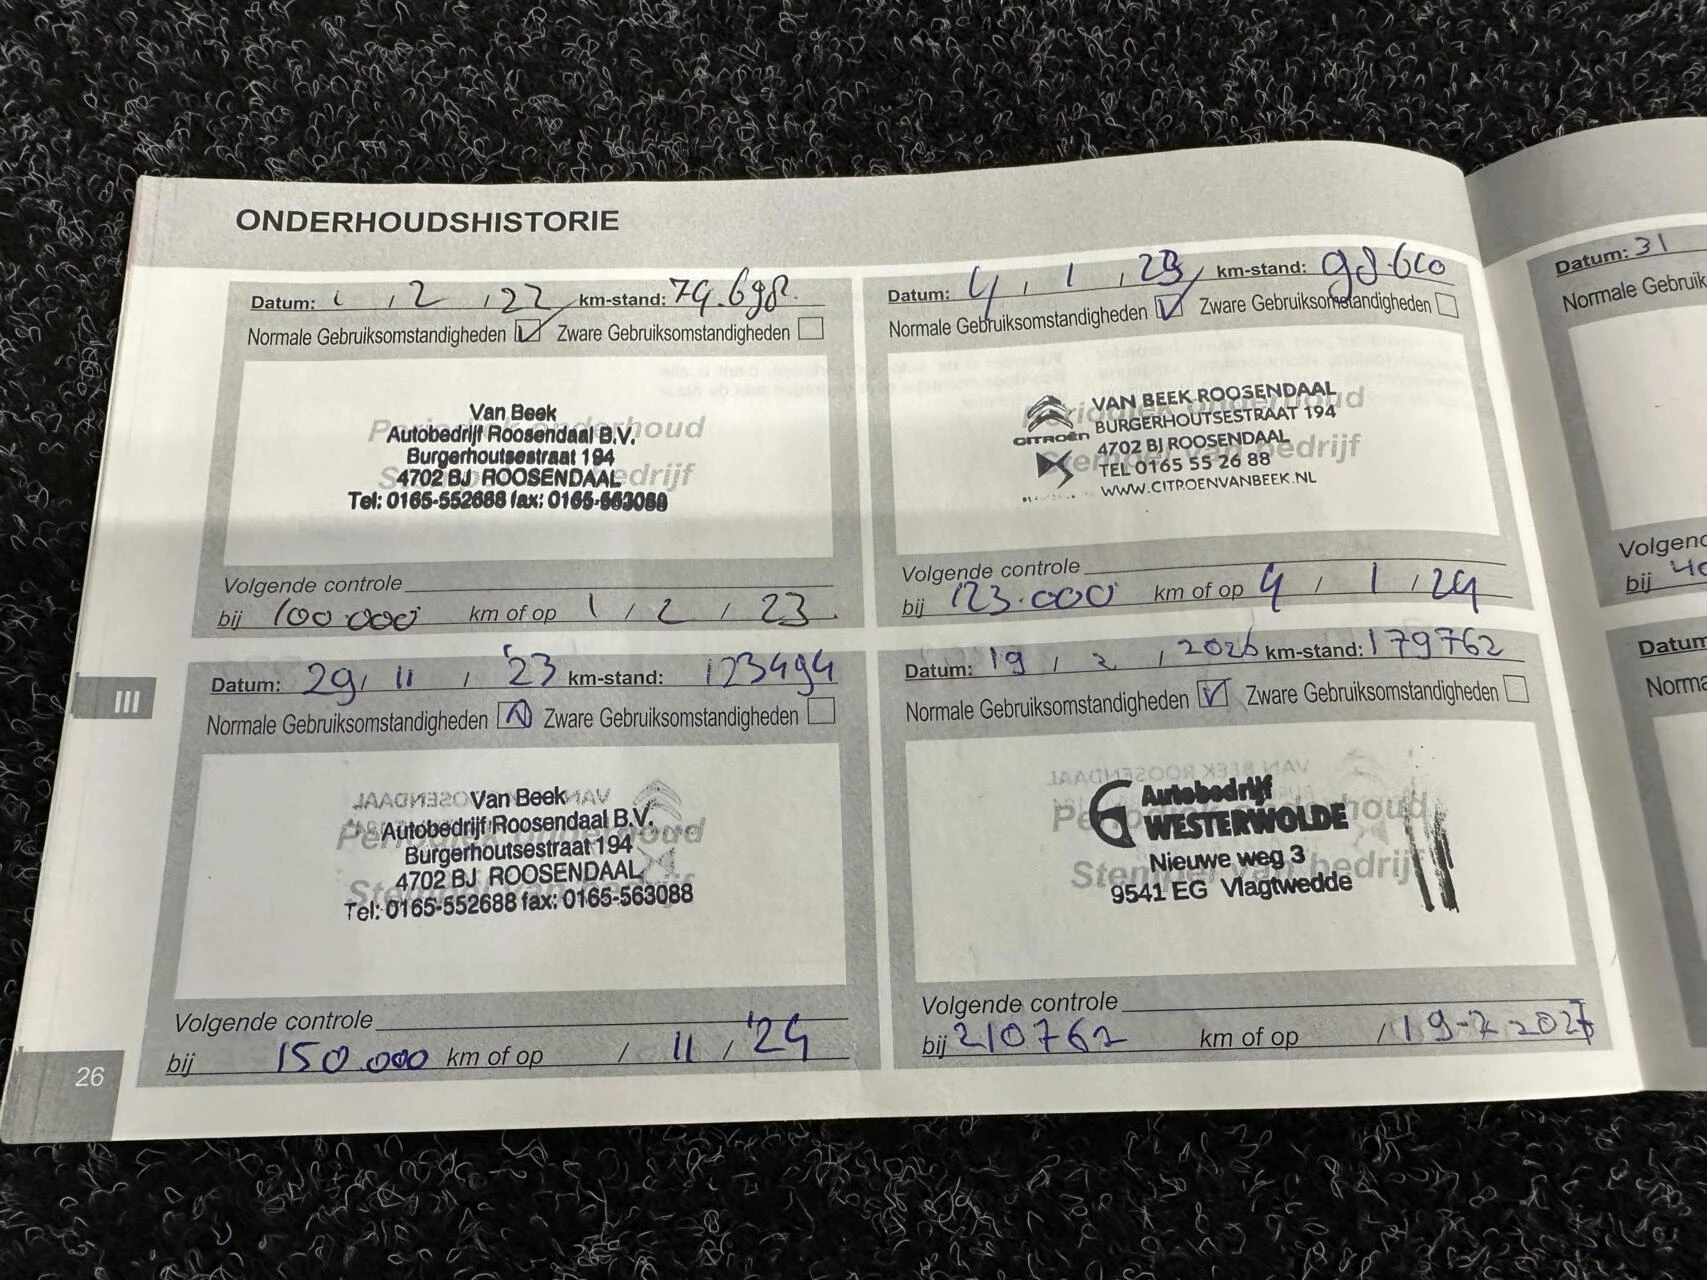 ONDERHOUDSHISTORIE
Datum: 1 / 2 / 22 km-stand: 74.698
Normale Gebruiksomstandigheden Zware Gebruiksomstandigheden
Periodiek onderhoud
Stempel van bedrijf
Van Beek
Autobedrijf Roosendaal B.V.
Burgerhoutsestraat 194
4702 BJ ROOSENDAAL
Tel: 0165-552688 fax: 0165-563088
Volgende controle
bij 100.000 km of op 1 / 2 / 23
Datum: 4 / 1 / 23 km-stand: 98.600
Normale Gebruiksomstandigheden Zware Gebruiksomstandigheden
Periodiek onderhoud
Stempel van bedrijf
CITROËN
VAN BEEK ROOSENDAAL
BURGERHOUTSESTRAAT 194
4702 BJ ROOSENDAAL
TEL 0165 55 26 88
WWW.CITROENVANBEEK.NL
Volgende controle
bij 123.000 km of op 4 / 1 / 24
Datum: 29 / 11 / '23 km-stand: 123494
Normale Gebruiksomstandigheden Zware Gebruiksomstandigheden
Periodiek onderhoud
Stempel van bedrijf
Van Beek
Autobedrijf Roosendaal B.V.
Burgerhoutsestraat 194
4702 BJ ROOSENDAAL
Tel: 0165-552688 fax: 0165-563088
Volgende controle
bij 150.000 km of op / 11 / '24
Datum: 19 / 2 / 2026 km-stand: 179762
Normale Gebruiksomstandigheden Zware Gebruiksomstandigheden
Periodiek onderhoud
Stempel van bedrijf
Autobedrijf
WESTERWOLDE
Nieuwe weg 3
9541 EG Vlagtwedde
Volgende controle
bij 210762 km of op / 19-2 2027
III
26
Datum: 31
Normale Gebruik
Volgend
bij 40
Datum
Norma